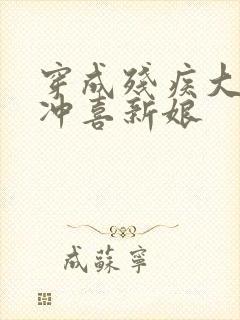 穿成残疾大
冲喜新娘
成蘇寧